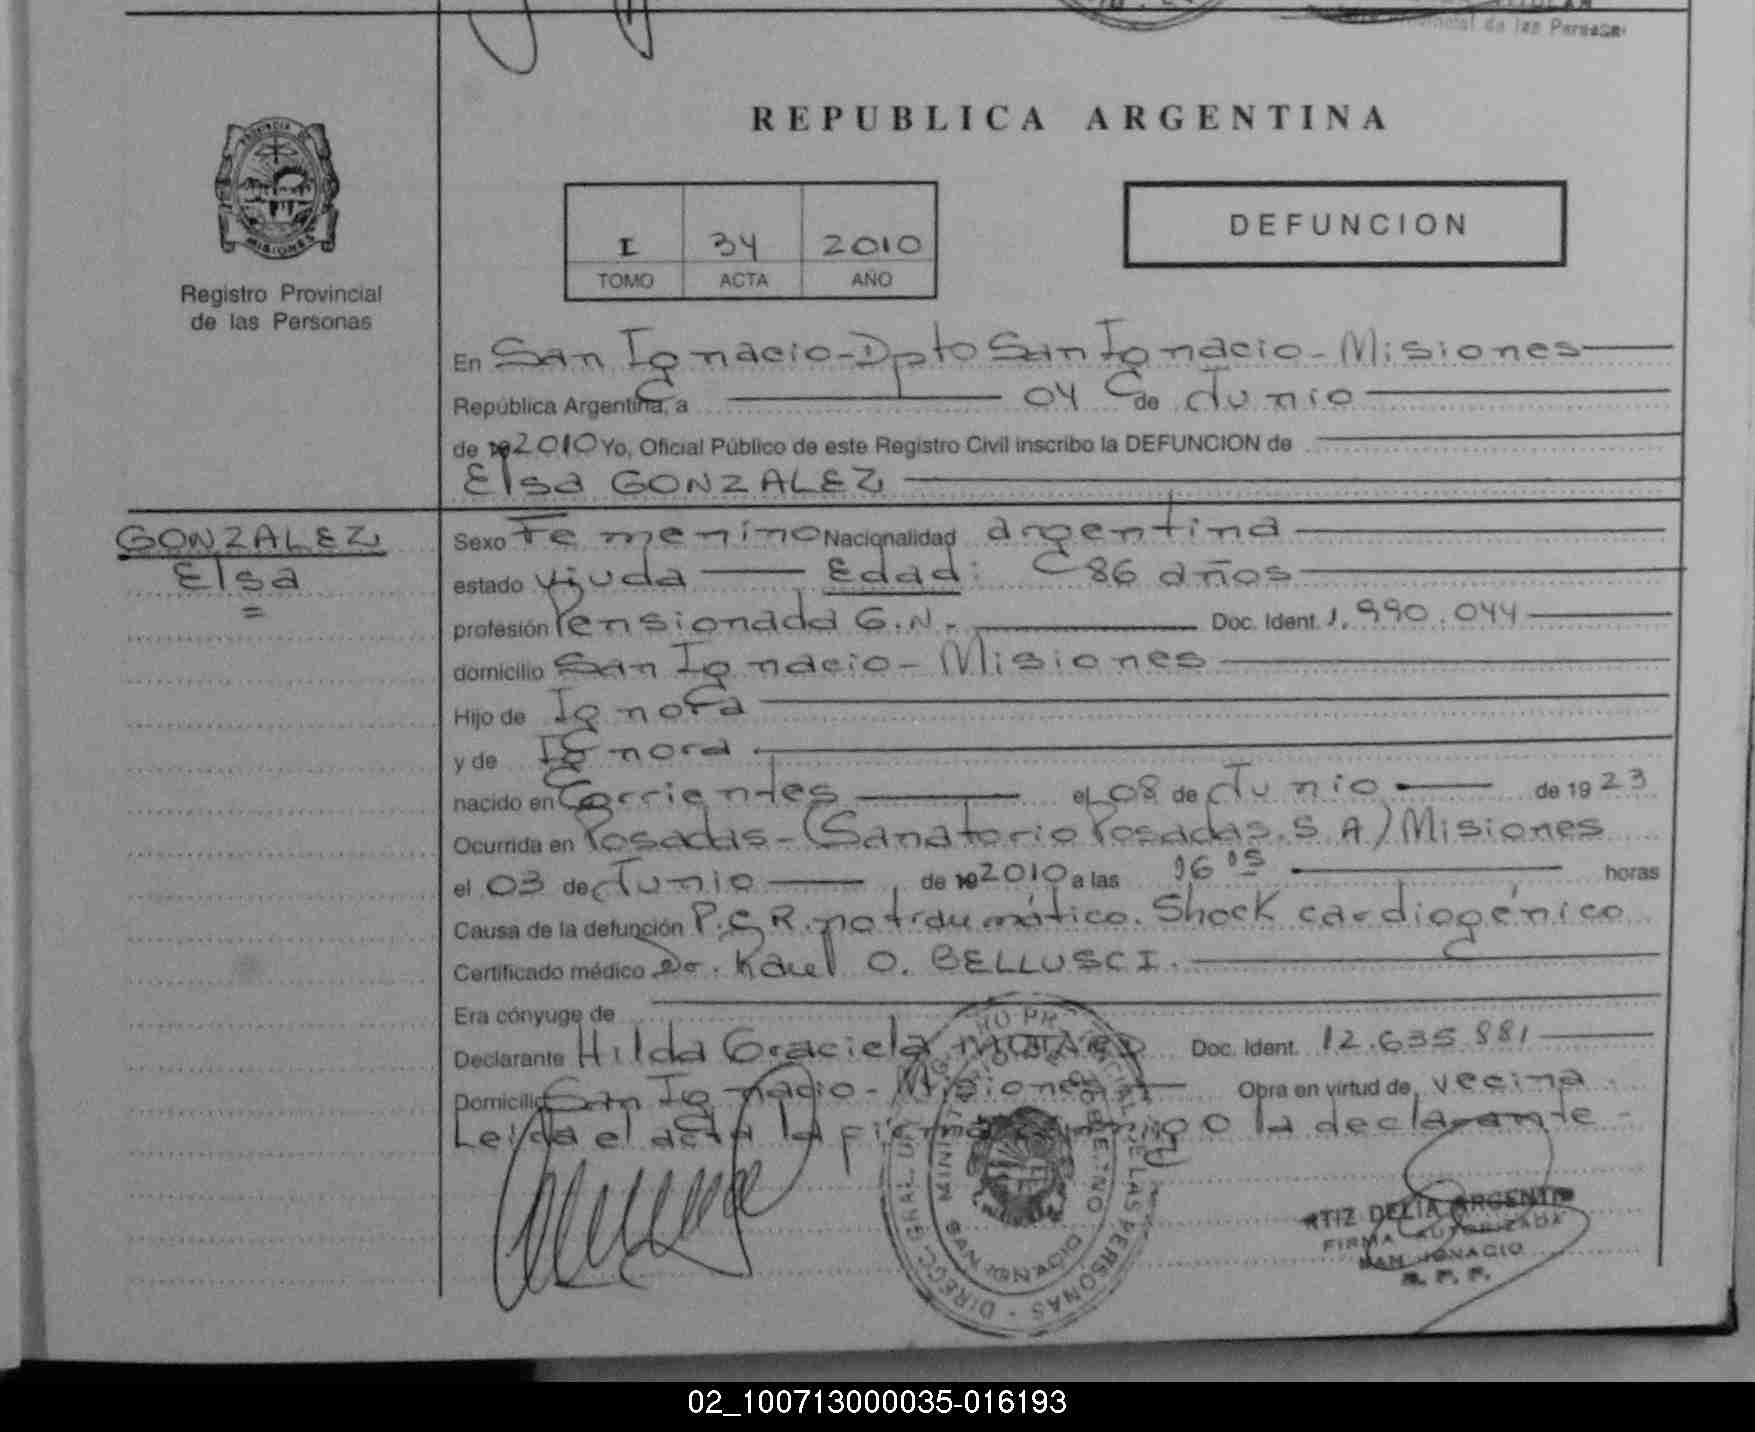 de las Personas
REPUBLICA ARGENTINA
PROVINCIA DE
MISIONES
Registro Provincial
de las Personas
I 34 2010
TOMO ACTA AÑO
DEFUNCION
En San Ignacio-Dpto San Ignacio-Misiones
República Argentina, a 04 de Junio
de 19 2010 Yo, Oficial Público de este Registro Civil inscribo la DEFUNCION de
Elsa GONZALEZ
GONZALEZ
Elsa
Sexo Femenino Nacionalidad argentina
estado viuda Edad: 86 años
profesión Pensionada G.N. Doc. Ident. 1.990.044
domicilio San Ignacio-Misiones
Hijo de Ignora
y de Ignora
nacido en Corrientes el 08 de Junio de 19 23
Ocurrida en Posadas-(Sanatorio Posadas.S.A) Misiones
el 03 de Junio de 19 2010 a las 16 05 horas
Causa de la defunción P.C.R. no traumático. Shock cardiogénico
Certificado médico Dr. Raul O. BELLUSCI.
Era cónyuge de
Declarante Hilda Graciela Doc. Ident. 12.635.881
Domicilio San Ignacio-Misiones Obra en virtud de vecina.
Leida el acta la firma conmigo la declarante-
DE LAS PERSONAS - DIRECC. GRAL. DE
SAN IGNACIO
RTIZ DELIA ARGENTI
FIRMA AUTORIZADA
SAN IGNACIO
R. P. P.
02_100713000035-016193